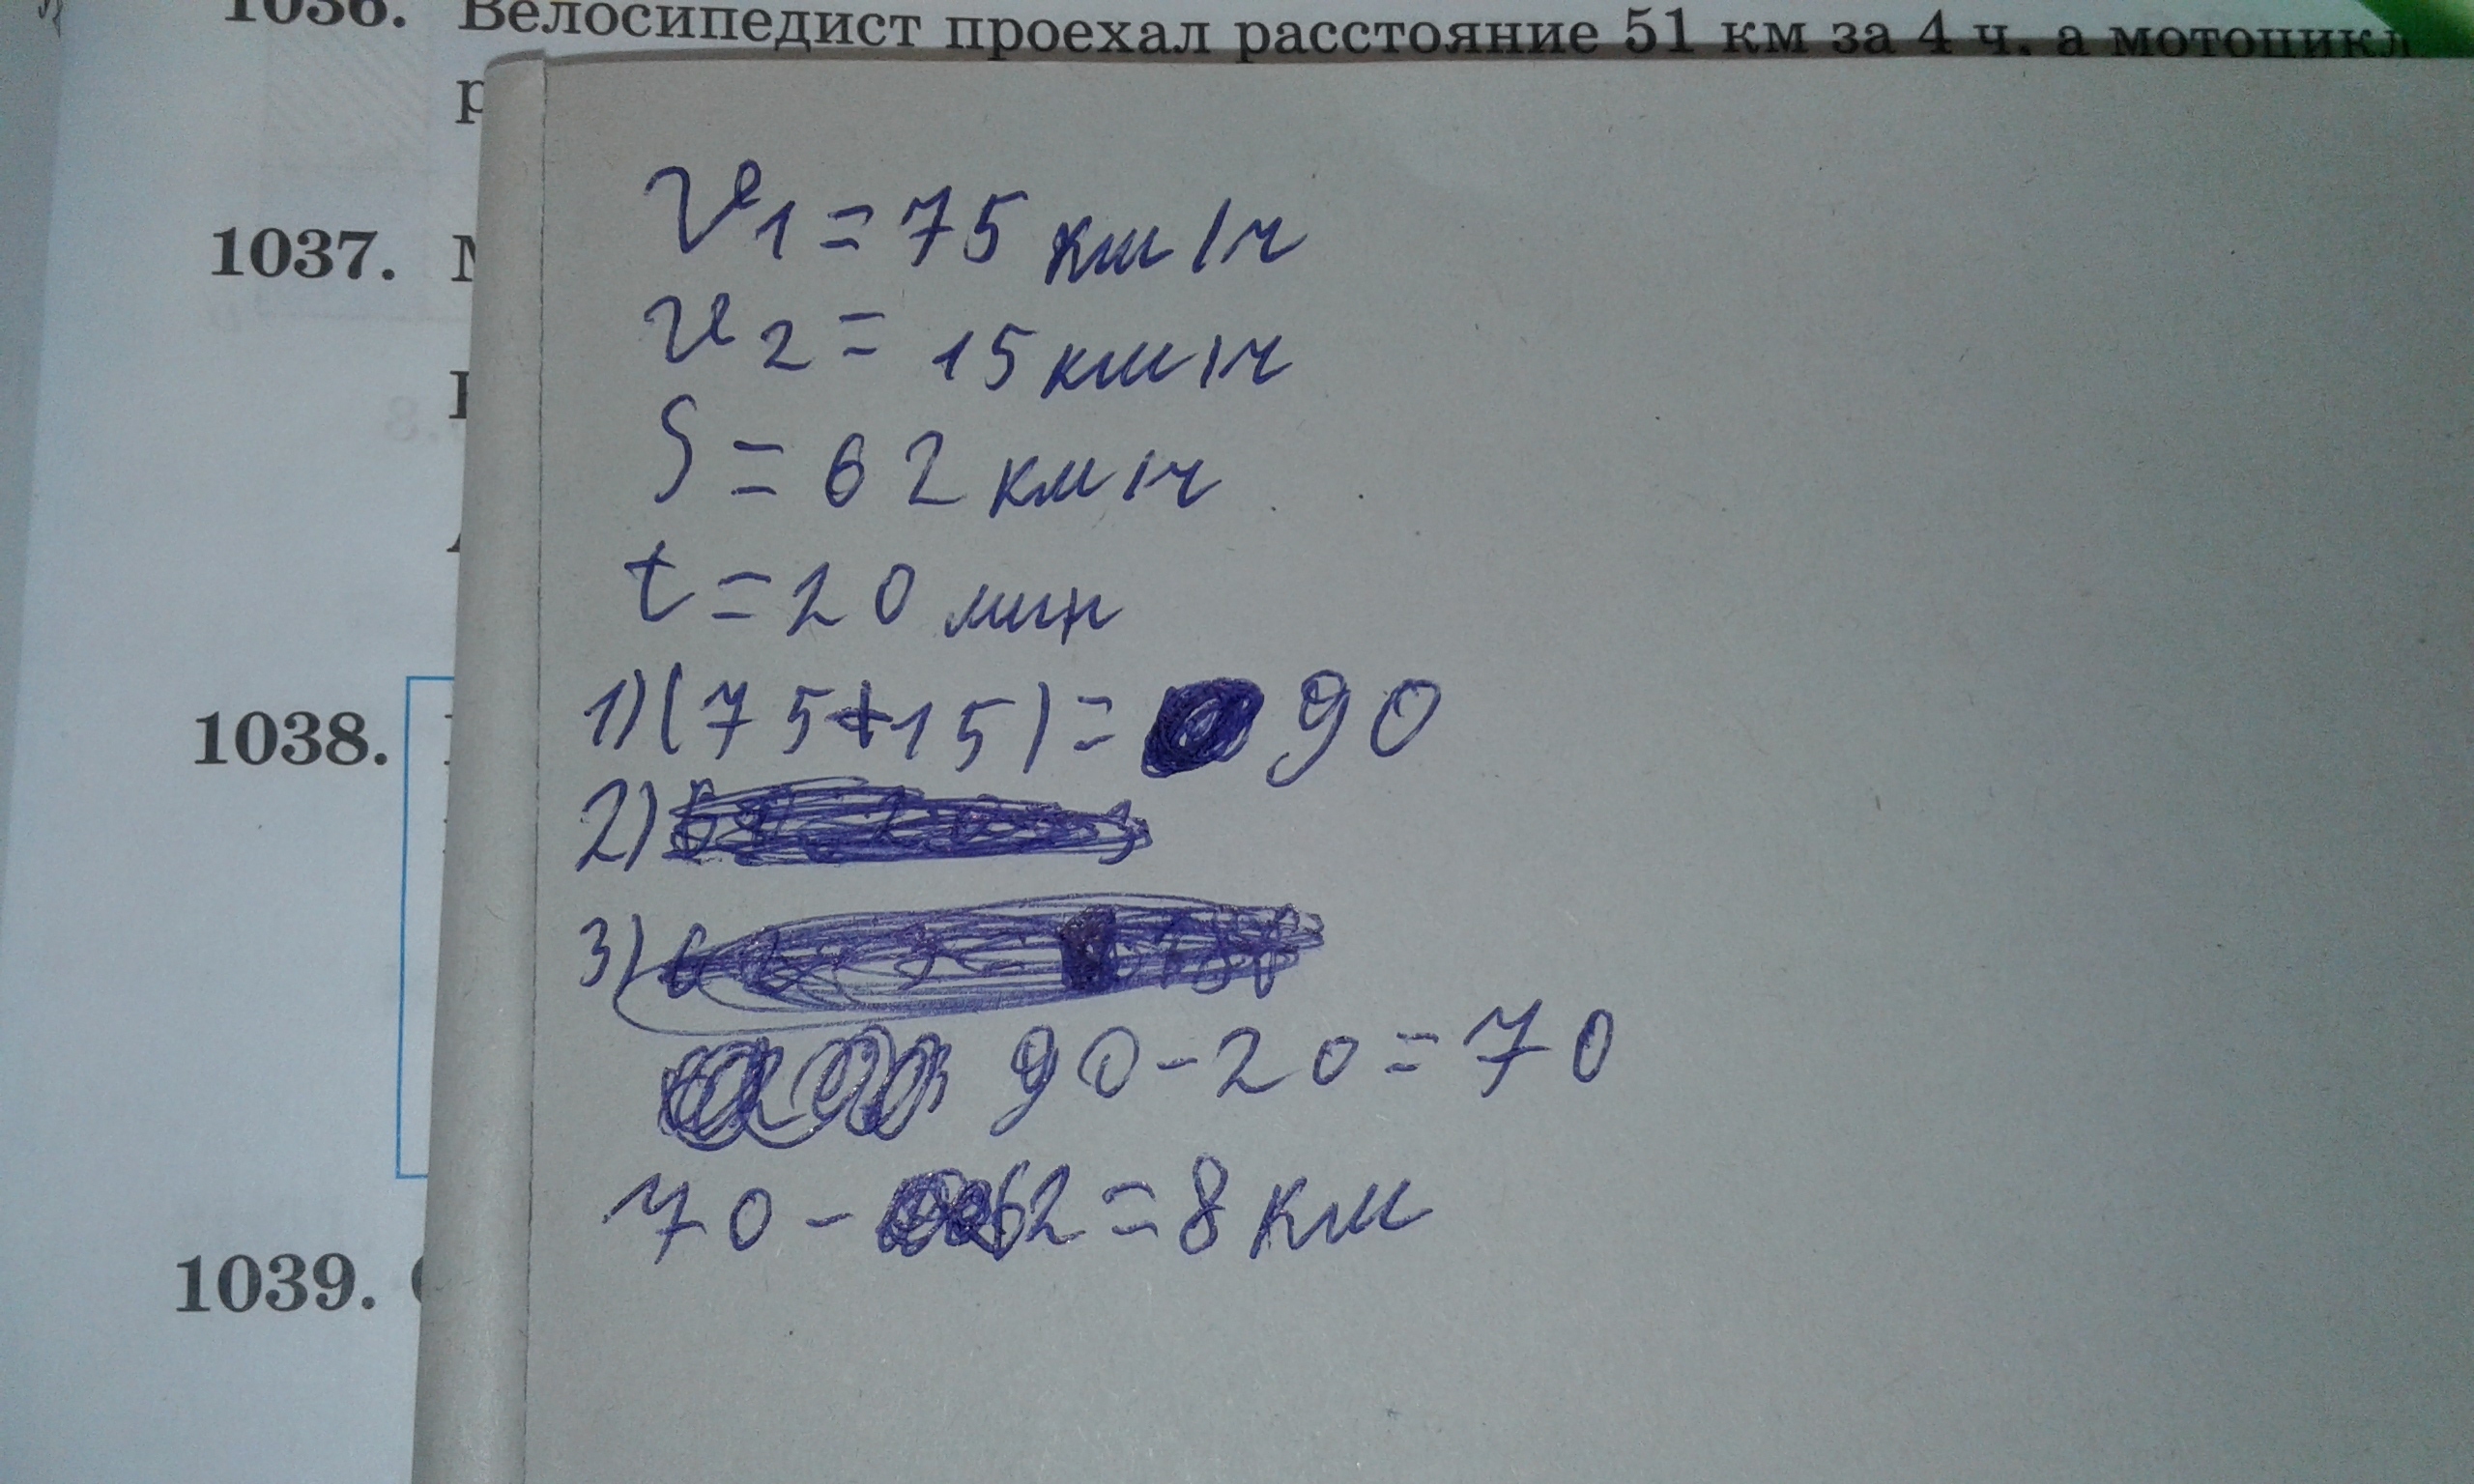 1036. Велосипедист проехал расстояние 51 км за 4 ч, а мотоцикл
р
1037.
v1 = 75 км/ч
v2 = 15 км/ч
S = 62 км/ч
t = 20 мин
1) (75+15) = 90
1038.
2)
3)
90 - 20 = 70
70 - 62 = 8 км
1039.